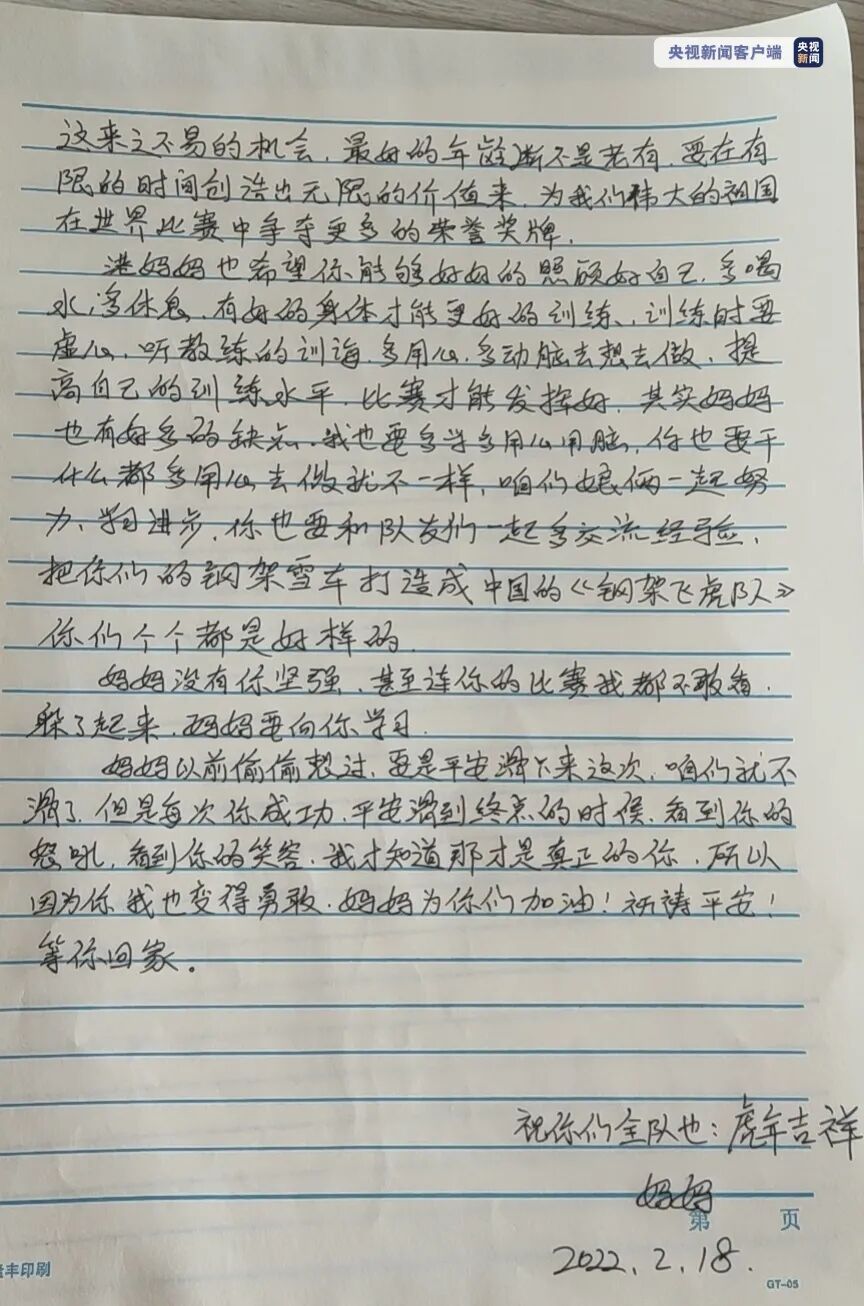 央视新闻客户端 央视新闻
这来之不易的机会，最好的年龄断不是老有，要在有
限的时间创造出无限的价值来，为我们伟大的祖国
在世界比赛中争夺更多的荣誉奖牌，
妈妈也希望你能够好好的照顾好自己，多喝
水，多休息，有好的身体才能更好的训练、训练时要
虚心，听教练的训诲，多用心，多动脑去想去做，提
高自己的训练水平，比赛才能发挥好，其实妈妈
也有好多的缺点，我也要多学多用心用脑，你也要干
什么都多用心去做就不一样，咱们娘俩一起努
力、学习进步，你也要和队友们一起多交流经验，
把你们的钢架雪车打造成中国的《钢架飞虎队》
你们个个都是好样的.
妈妈没有你坚强，甚至连你的比赛我都不敢看.
躲了起来，妈妈要向你学习.
妈妈以前偷偷想过，要是平安滑下来这次，咱们就不
滑了，但是每次你成功，平安滑到终点的时候，看到你的
怒吼，看到你的笑容，我才知道那才是真正的你，所以
因为你我也变得勇敢，妈妈为你们加油！祈祷平安！
等你回家。
祝你们全队也：虎年吉祥
妈妈
第 页
2022.2.18.
丰印刷
GT-05